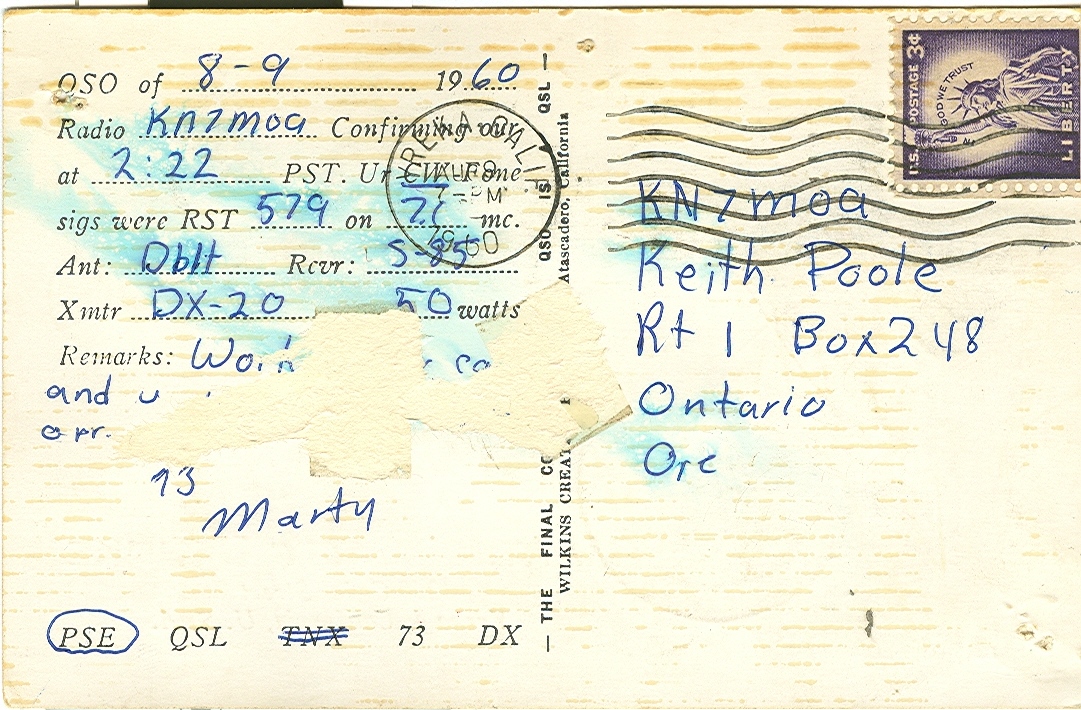 QSO of 8-9 1960
Radio KN7moa Confirming our
at 2:22 PST. Ur CW Fone
sigs were RST 579 on mc.
Ant: Dblt Rcvr: S-85
Xmtr DX-20 50 watts
Remarks:
and u
73
Marty
PSE QSL TNX 73 DX
— THE FINAL QSO IS QSL —
WILKINS Atascadero, California
CALIF
PM
1960
U.S. POSTAGE 3¢
IN GOD WE TRUST
LIBERTY
KN7moa
Keith Poole
Rt 1 Box 248
Ontario
Ore